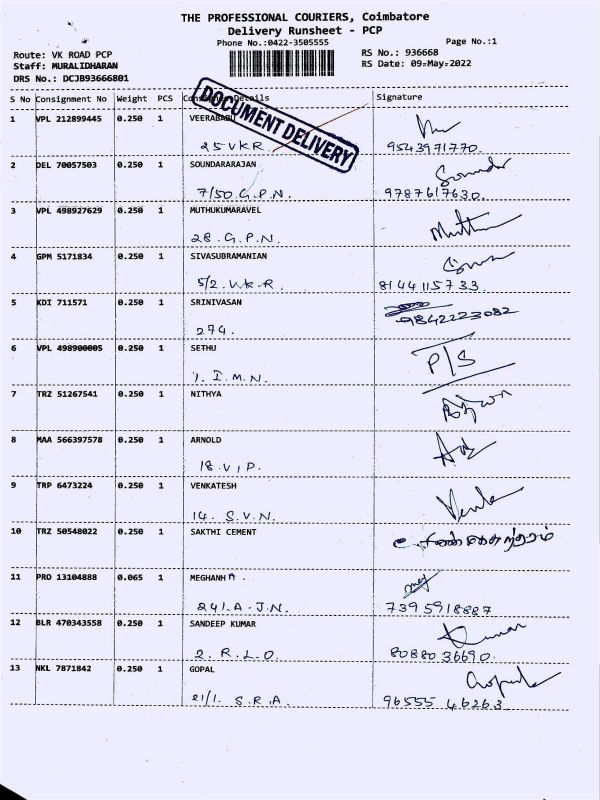 THE PROFESSIONAL COURIERS, Coimbatore
Delivery Runsheet - PCP
Phone No.:0422-3505555
Page No.:1
Route: VK ROAD PCP
RS No.: 936668
Staff: MURALIDHARAN
RS Date: 09-May-2022
DRS No.: DCJB93666801
S No Consignment No Weight PCS Consignee Details Signature
DOCUMENT DELIVERY
1 VPL 212899445 0.250 1 VEERABABU
25 VKR 9543971770.
2 DEL 70057503 0.250 1 SOUNDARARAJAN
7/50. G.P.N. 9787617630.
3 VPL 498927629 0.250 1 MUTHUKUMARAVEL
28. G.P.N.
4 GPM 5171834 0.250 1 SIVASUBRAMANIAN
5/2. V.K.R. 8144115733
5 KDI 711571 0.250 1 SRINIVASAN
274. 9842223082
6 VPL 498900005 0.250 1 SETHU P/S
1. I.M.N.
7 TRZ 51267541 0.250 1 NITHYA
8 MAA 566397578 0.250 1 ARNOLD
18.V.P.
9 TRP 6473224 0.250 1 VENKATESH
14. S.V.N.
10 TRZ 50548022 0.250 1 SAKTHI CEMENT
11 PRO 13104888 0.065 1 MEGHANHA.
241-A-J.N. 7395918887
12 BLR 470343558 0.250 1 SANDEEP KUMAR Kumar
2. R.L.O. 8088036690.
13 NKL 7871842 0.250 1 GOPAL
21/1. S.R.A. 96555 46263